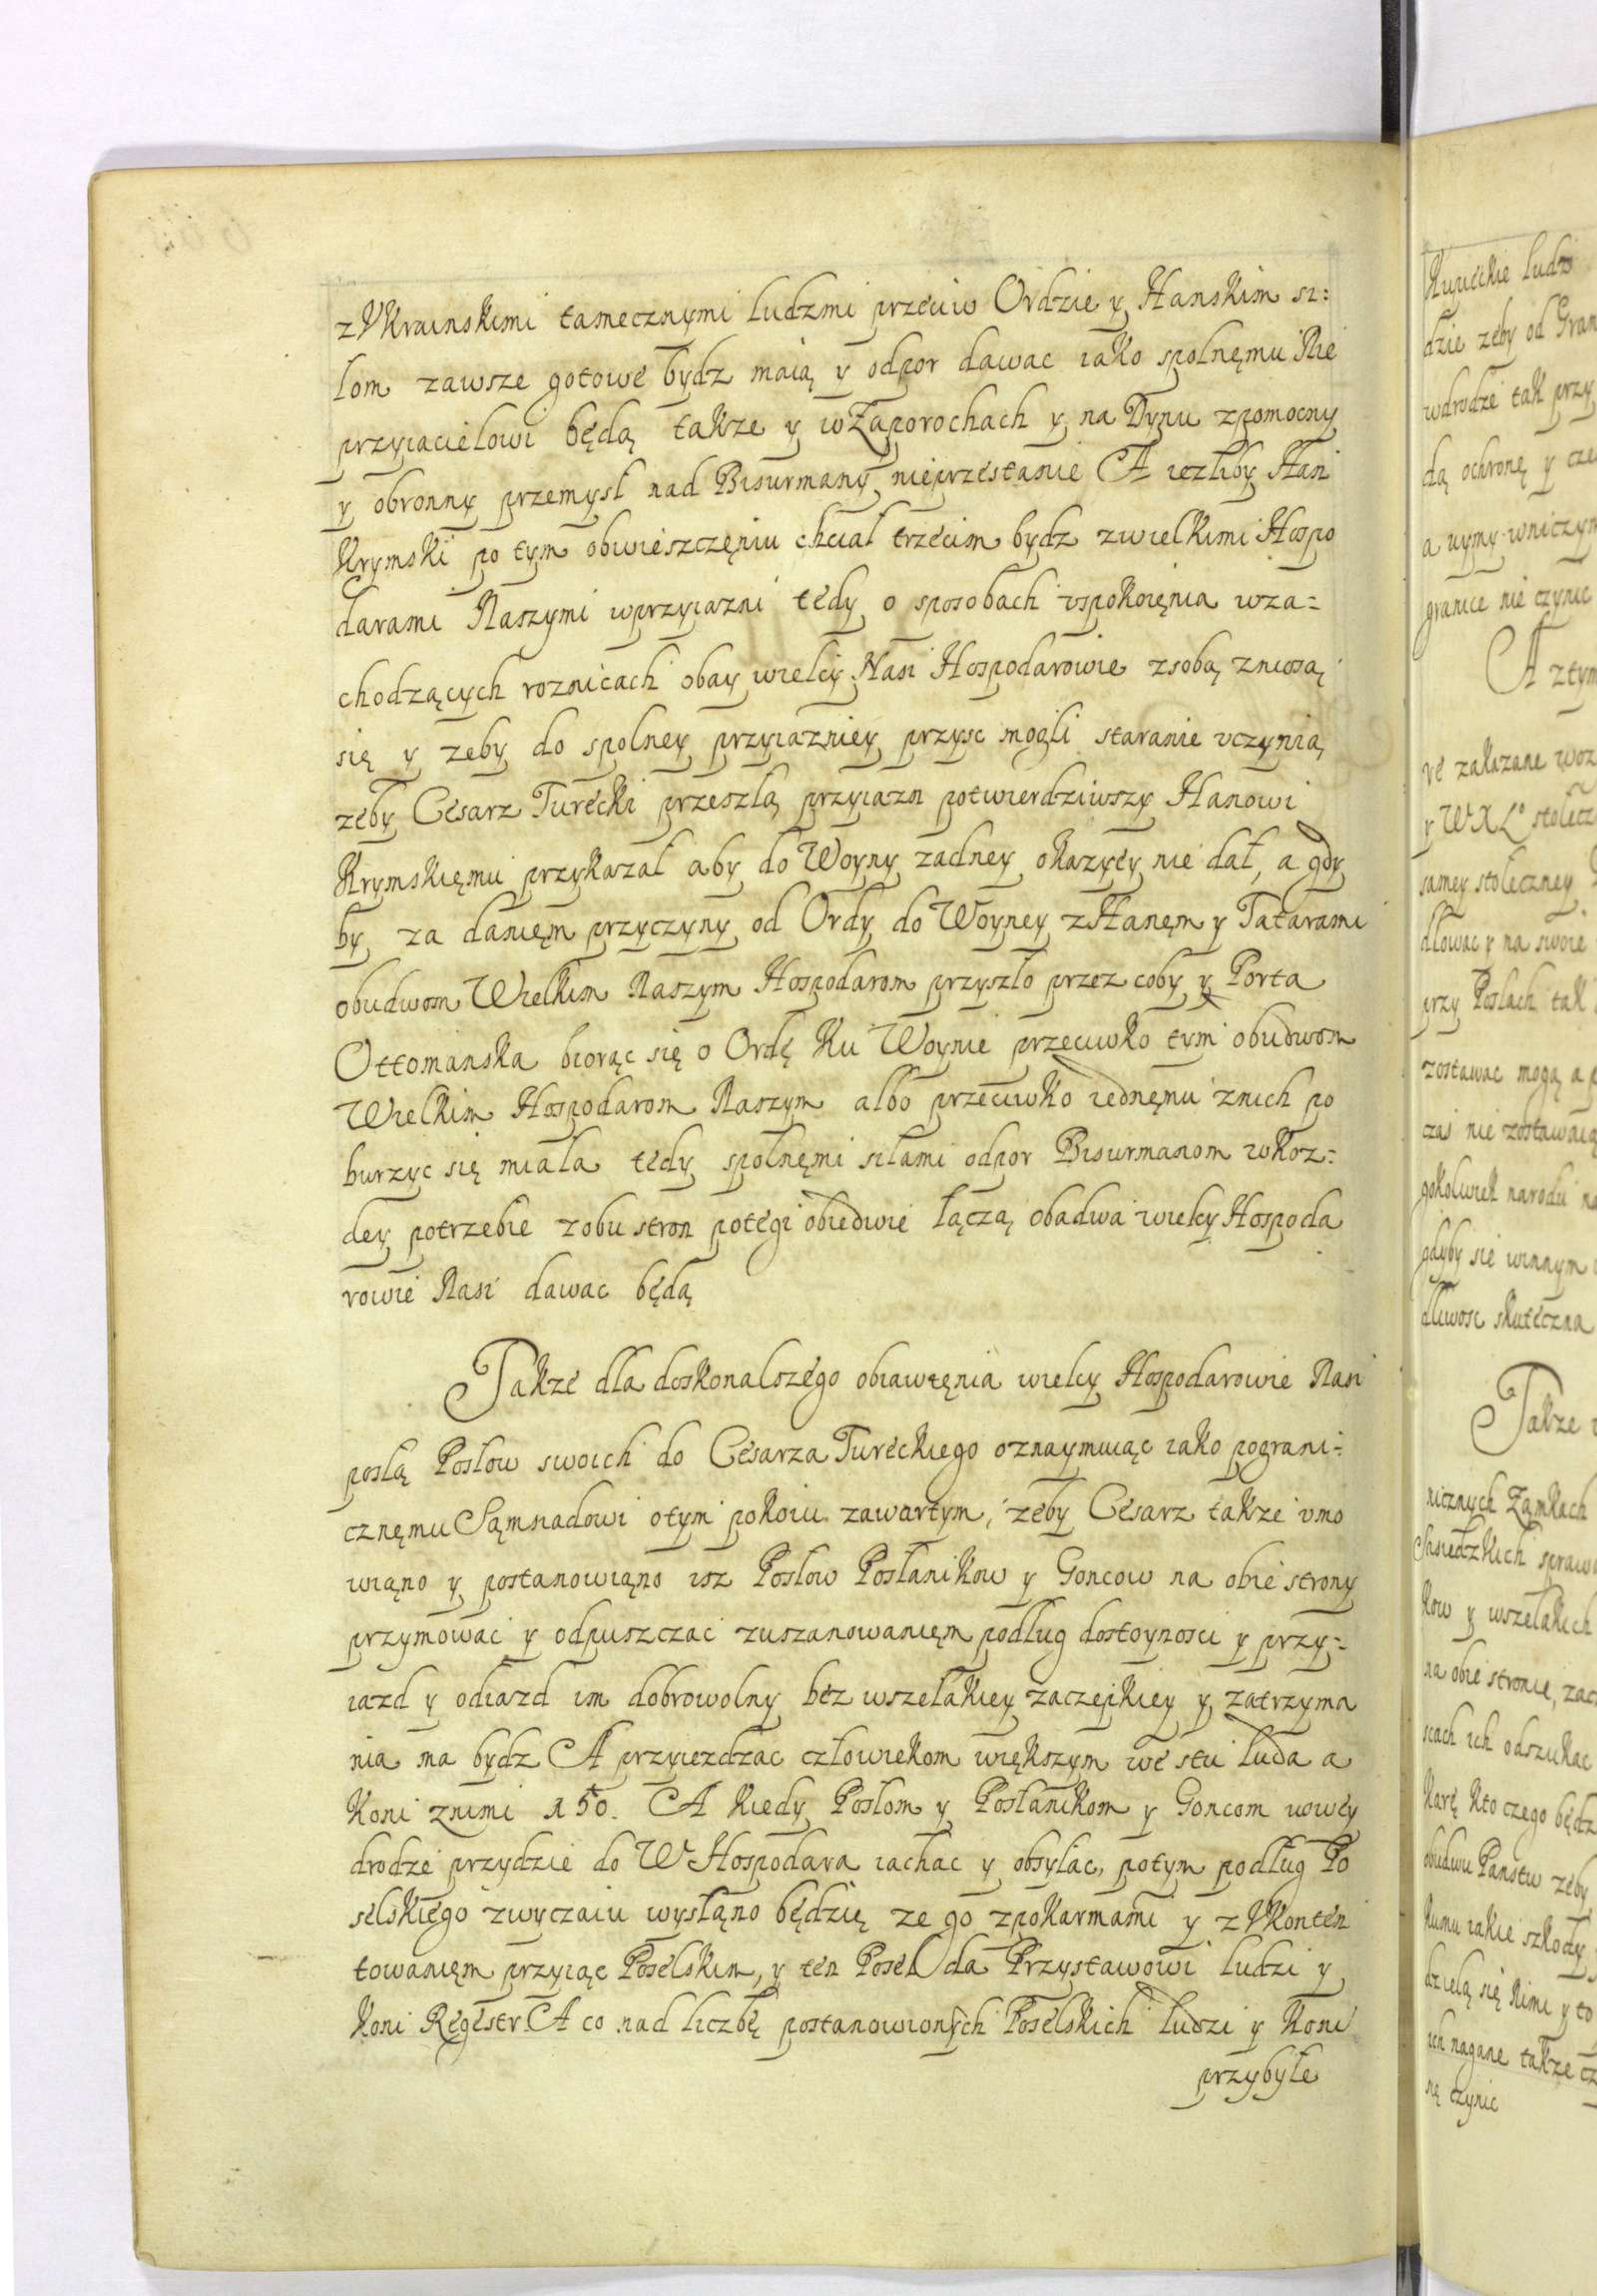 zVkrainskimi tamecznymi ludzmi przeciw Ordzie y Hanskim si:
lom zawsze gotowe bydz maią y odpor dawac iako spolnęmu Nie
przyiacielowi będą takze y wZaporochach y na Dynu zpomocny
y obronny przemysl nad Bisurmany nieprzestanie A iezliby Han
Krymski po tym obwieszczęniu chciał trzecim bydz zwielkimi Hospo
darami Naszymi wprzyiazni tedy o sposobach vspokoięnia wza=
chodzących roznicach obay wielcy Nasi Hospodarowie zsobą zniosą
się y zeby do spolney przyiazniey przysc mogli staranie vczynią
zeby Cesarz Turecki przeszlą przyiazn potwierdziwszy Hanowi
Krymskięmu przykazał aby do Woyny zadney okazyey nie dał, a gdy
by za danięm przyczyny od Ordy do Woyney zHanęm y Tatarami
obudwom Wielkim Naszym Hospodarom przyszło przez coby y Porta
Ottomanska biorąc się o Ordę ku Woynie przeciwko tym obudwom
Wielkim Hospodarom Naszym albo przeciwko iednęmu znich po
burzyc się miala tedy spolnęmi silami odpor Bisurmanom wkoz=
dey potrzebie zobu stron potegi obiedwie łączą obadwa wielcy Hospoda
rowie Nasi dawac będą
Takze dla doskonalszego obiawięnia wielcy Hospodarowie Nasi
poslą Poslow swoich do Cesarza Tureckiego oznaymuiąc iako pograni=
cznęmu Sąmsiadowi otym pokoiu zawartym, zeby Cesarz takze vmo
wiąno y postanowiąno isz Poslow Poslanikow y Goncow na obie strony
przymowac y odpuszczac zuszanowanięm podlug dostoynosci y przy=
iazd y odiazd im dobrowolny bez wszelakiey zaczepkiey y zatrzyma
nia ma bydz A przyiezdzac człowiekom większym we stu luda a
koni znimi 150. A kiedy Poslom y Poslanikom y Goncom wowey
drodze przydzie do W Hospodara iachac y obsylac, potym podlug Po
selskiego zwyczaiu wysłąno będzię ze go zpokarmami y zVkonten
towanięm przyiąc Poselskim, y ten Posel da Przystawowi ludzi y
koni Regestr. A co nad liczbę postanowionych Poselskich ludzi y koni
przybyłe
Kupieckie ludzi
dzie zeby od Gran
wdrodze tak przy
dą ochronę y cze
a uymy wniczym
granice nie czynic
A ztym
re zakazane woz
y WXLo stolecz
samey stoleczney
dłowac y na swoie
przy Poslach tak
zostawac mogą a p
czas nie zostawaią
gokolwiek narodu na
gdyby się winnym
dliwosc skuteczna
Takze
nicznych Zamkach
Sąsiedzkich spraw
kow y wszelakich
na obie stronie, zac
scach ich odszukac
karę kto czego będz
obudwu Panstw zeby
kumu iakie szkody
dzielą się kimi y to
ich nagane takze cz
nę czynic